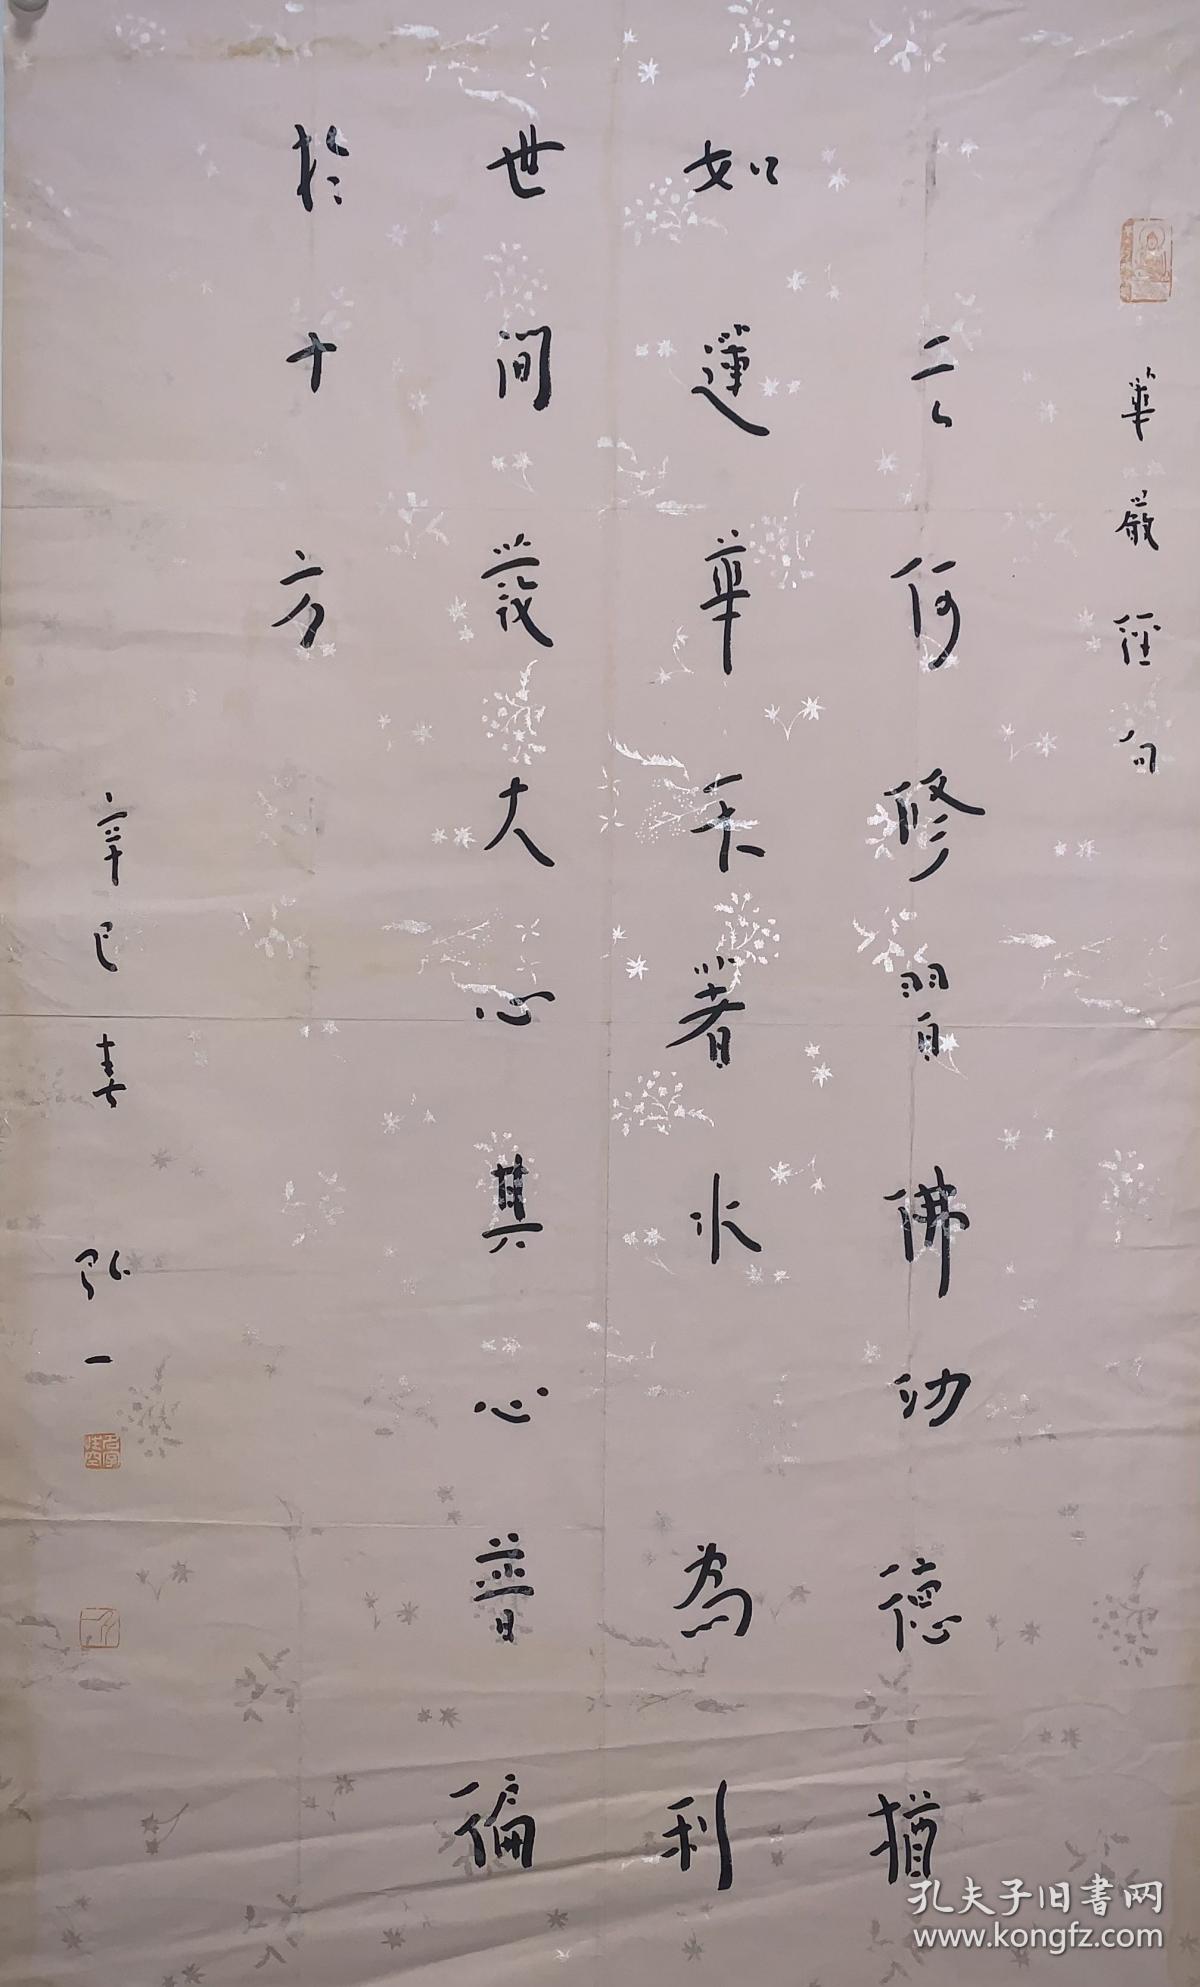 華嚴經句
云何修習佛功德猶
如蓮華不著水為利
世間發大心其心普徧
於十方
辛巳春
弘一
孔夫子旧書网
www.kongfz.com